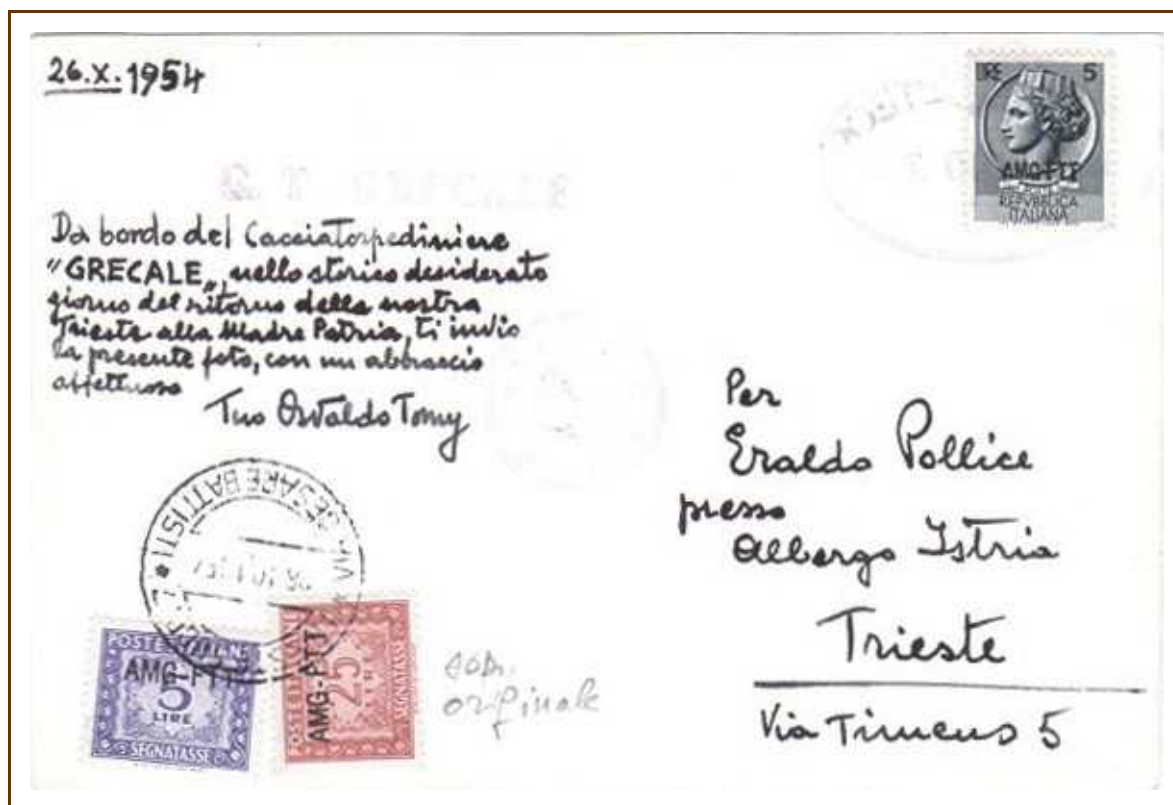 26.X.1954
LIRE 5
AMG-FTT
REPVBBLICA
ITALIANA
Da bordo del Cacciatorpediniere
"GRECALE", nello storico desiderato
giorno del ritorno della nostra
Trieste alla Madre Patria, ti invio
la presente foto, con un abbraccio
affettuoso
Tuo Osvaldo Tomy
Per
Eraldo Pollice
presso
Albergo Istria
Trieste
Via Timeus 5
CESARE BATTISTI
POSTE ITALIANE
AMG-FTT
5
LIRE
SEGNATASSE
POSTE ITALIANE
AMG-FTT
25
LIRE
SEGNATASSE
originale